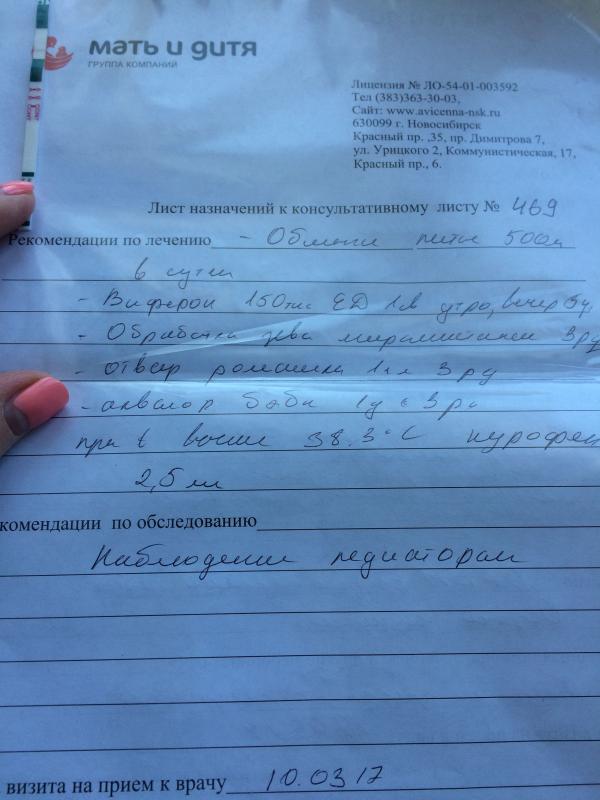 мать и дитя
ГРУППА КОМПАНИЙ
Лицензия № ЛО-54-01-003592
Тел (383)363-30-03,
Сайт: www.avicenna-nsk.ru
630099 г. Новосибирск
Красный пр. ,35, пр. Димитрова 7,
ул. Урицкого 2, Коммунистическая, 17,
Красный пр., 6.
Лист назначений к консультативному листу № 469
Рекомендации по лечению - питье 500
в сутки
- Виферон 150 тыс ЕД 1 св утро, вечер 5
- Обработка зева мирамистином 3 р
- отвар ромашки 3
- аквалор беби 3
при t выше 38.3°С нурофен
2,5 мл
комендации по обследованию
Наблюдение педиатором
визита на прием к врачу 10.03 17